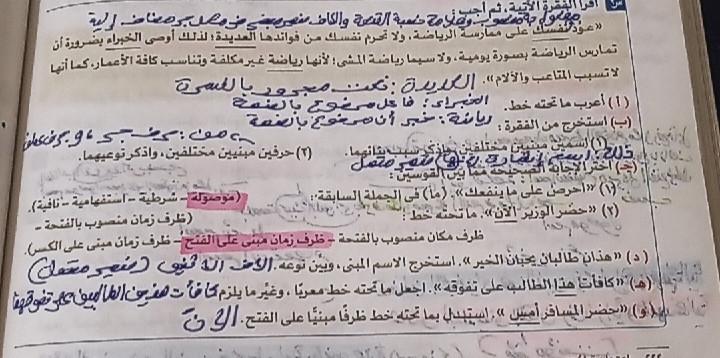 اقرأ الفقرة الآتية، ثم أجب:
«عود نفسك على ممارسة الرياضة، ولا تحرم نفسك من فوائدها العديدة؛ لذلك أوصى الخبراء بضرورة أن
تمارس الرياضة بصورة يومية، ولا سيما رياضة المشى؛ لأنها رياضة غير مكلفة وتناسب كافة الأعمار، كما أنها
لا تسبب المتاعب والآلام». العديدة: نعت مجرور بالكسرة
(أ) أعرب ما تحته خط. الخبراء: فاعل مرفوع بالضمة
(ب) استخرج من الفقرة: رياضة: خبر أن مرفوع بالضمة
(١) اسمين مبنيين مختلفين، واذكر سبب بنائهما. (٢) حرفين مبنيين مختلفين، واذكر نوعيهما.
(ج) اختر الإجابة الصحيحة مما بين القوسين:
(١) «احرص على ما ينفعك». (ما) فى الجملة السابقة: (موصولة – شرطية – استفهامية – نافية).
(٢) «حضر الوزير الآن». ما تحته خط: (ظرف زمان منصوب بالفتحة –
ظرف مكان منصوب بالفتحة – ظرف زمان مبنى على الفتح – ظرف زمان مبنى على الكسر).
(د) «هذان طالبان يحبان الخير». استخرج الاسم المبنى، وبين نوعه.
(هـ) «كافأت هذا الطالب على تفوقه». اجعل ما تحته خط معربًا، وغير ما يلزم كافأت هذين الطالبين على تفوقهما
(و) «حضر المسافر أمس». استبدل بما تحته خط ظرفًا مبنيًا على الفتح. الآن